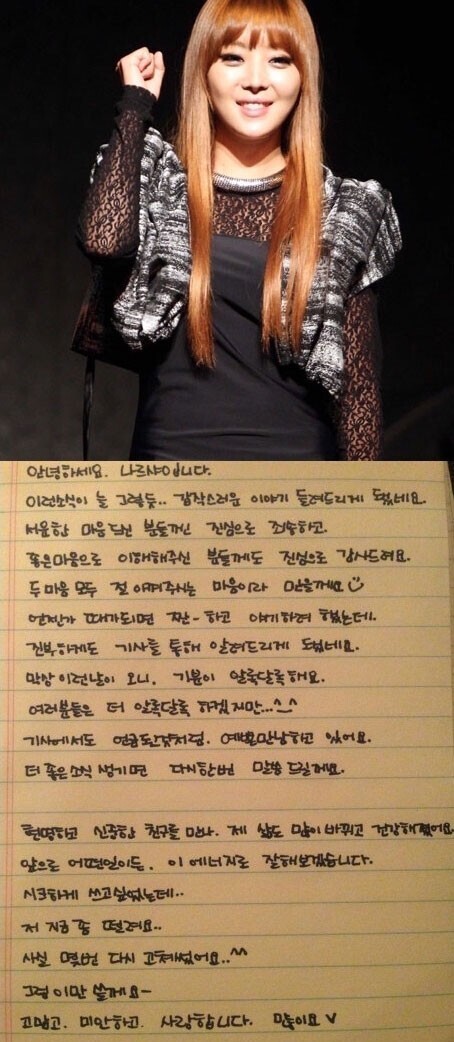 안녕하세요. 나르샤입니다.
이런소식이 늘 그렇듯.. 갑작스러운 이야기 들려드리게 됐네요.
서운한 마음 드신 분들께는 진심으로 죄송하고.
좋은마음으로 이해해주신 분들께도 진심으로 감사드려요.
두 마음 모두 절 아껴주시는 마음이라 믿을께요
언젠가 때가되면 짠-하고 얘기하려 했는데.
진부하게도 기사를 통해 알려드리게 됐네요.
막상 이런날이 오니. 기분이 알록달록해요.
여러분들은 더 알록달록 하겠지만...^-^
기사에서도 언급된것처럼. 예쁘게 만남하고 있어요.
더 좋은소식 생기면 다시한번 말씀 드릴께요.
현명하고 신중한 친구를 만나. 제 삶도 많이 바뀌고 건강해졌어요
앞으로 어떤일이든. 이 에너지로 잘해보겠습니다.
시크하게 쓰고싶었는데..
저 지금 좀 떨려요..
사실 몇번 다시 고쳐썼어요..^^
그럼 이만 쓸께요~
고맙고. 미안하고. 사랑합니다. 민낯이요 V